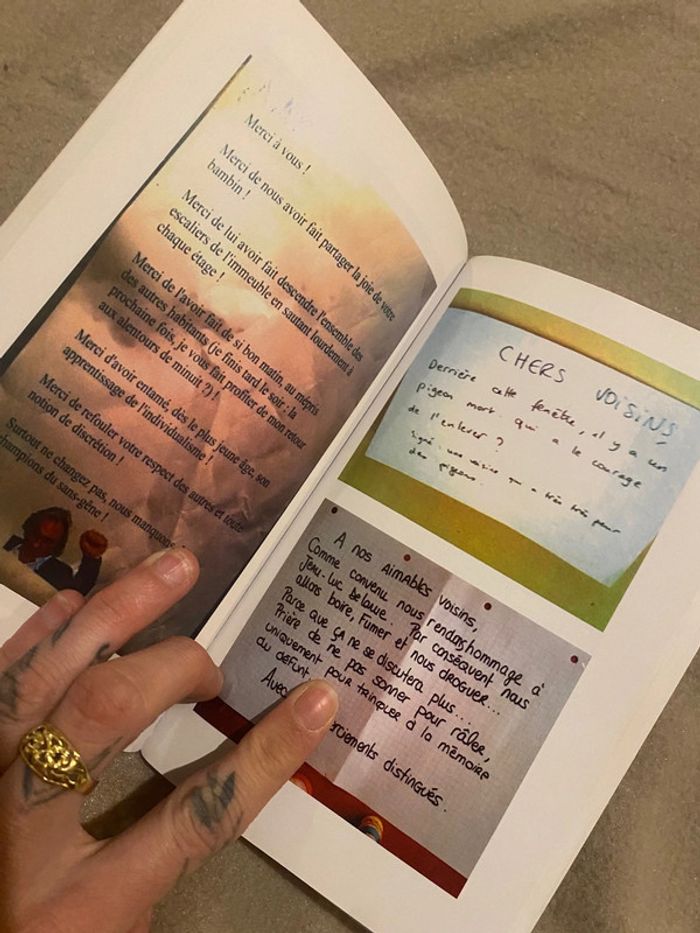 Merci à vous !
Merci de nous avoir fait partager la joie de votre
bambin !
Merci de lui avoir fait descendre l'ensemble des
escaliers de l'immeuble en sautant lourdement à
chaque étage !
Merci de l'avoir fait de si bon matin, au mépris
des autres habitants (je finis tard le soir : la
prochaine fois, je vous fait profiter de mon retour
aux alentours de minuit ?) !
Merci d'avoir entamé, dès le plus jeune âge, son
apprentissage de l'individualisme !
Merci de refouler votre respect des autres et toute
notion de discrétion !
Surtout ne changez pas, nous manquons
champions du sans-gêne !
CHERS VOISINS
Derrière cette fenêtre, il y a un
pigeon mort. qui a le courage
de l'enlever ?
Signé : une voisine qui a très très peur
des pigeons.
A nos aimables voisins,
Comme convenu nous rendons hommage à
Jean-Luc Delarue. Par conséquent nous
allons boire, fumer et nous droguer...
Parce que ça ne se discutera plus...
Prière de ne pas sonner pour râler,
uniquement pour trinquer à la mémoire
du défunt
Avec
erciements distingués.